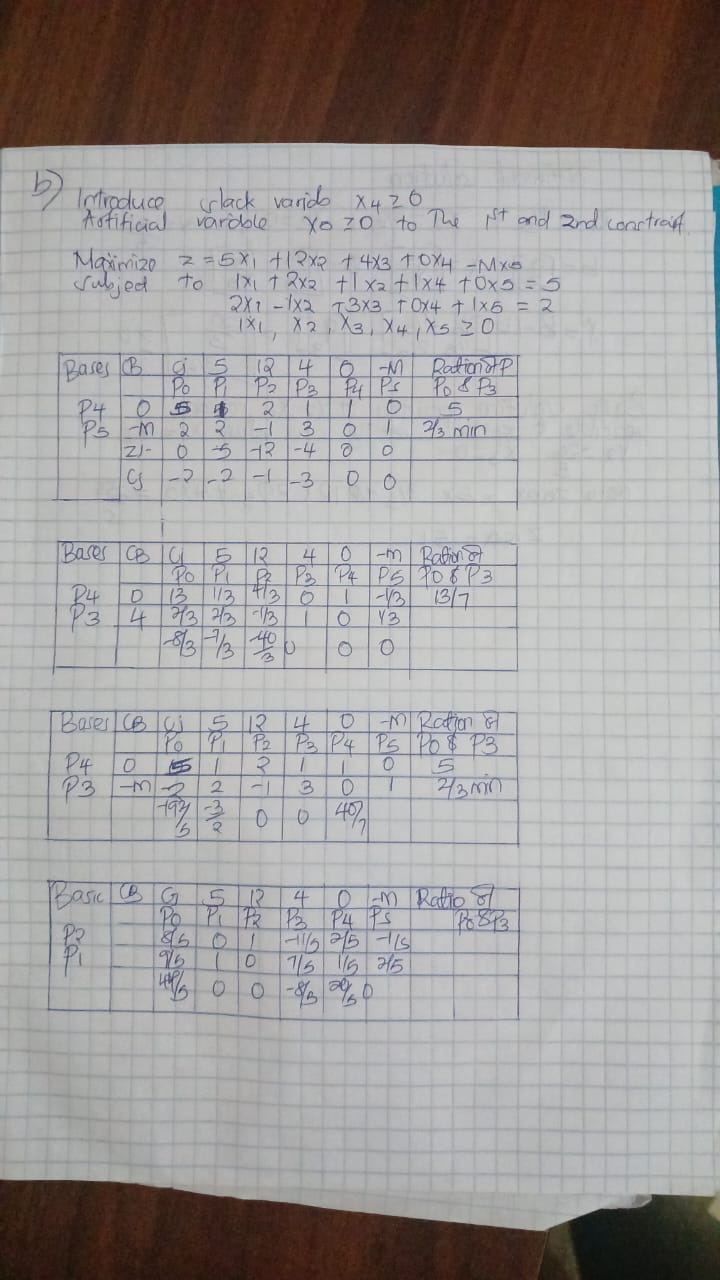 b) Introduce slack variab x4 ≥ 0
Artificial variable x5 ≥0 to The 1st and 2nd constraint
Maximize z = 5x1 +12x2 + 4x3 + 0x4 -Mx5
Subject to 1x1 + 2x2 +1x2 +1x4 +0x5 = 5
2x1 -1x2 +3x3 +0x4 +1x5 = 2
1x1, x2, x3, x4, x5 ≥ 0
Bases CB Cj 5 12 4 0 -M Ration of P
P0 P1 P2 P3 P4 P5 P0 & P3
P4 0 5 1 2 1 1 0 5
P5 -M 2 2 -1 3 0 1 2/3 min
Zj- 0 -5 -12 -4 0 0
Cj -2 -2 -1 -3 0 0
Bases CB Cj 5 12 4 0 -M Ration of
P0 P1 P2 P3 P4 P5 P0 & P3
P4 0 13 1/3 7/3 0 1 -1/3 13/7
P3 4 2/3 2/3 -1/3 1 0 1/3
-8/3 -7/3 -40/3 0 0 0
Bases CB Cj 5 12 4 0 -M Ration of
P0 P1 P2 P3 P4 P5 P0 & P3
P4 0 5 1 2 1 1 0 5
P3 -M -2 2 -1 3 0 1 2/3 min
-3/2 0 0 40/7
Basic CB Cj 5 12 4 0 -M Ratio of
P0 P1 P2 P3 P4 P5 P0 & P3
P2 8/5 0 1 -1/5 2/5 -1/5
P1 9/5 1 0 7/5 1/5 2/5
0 0 -8/3 0